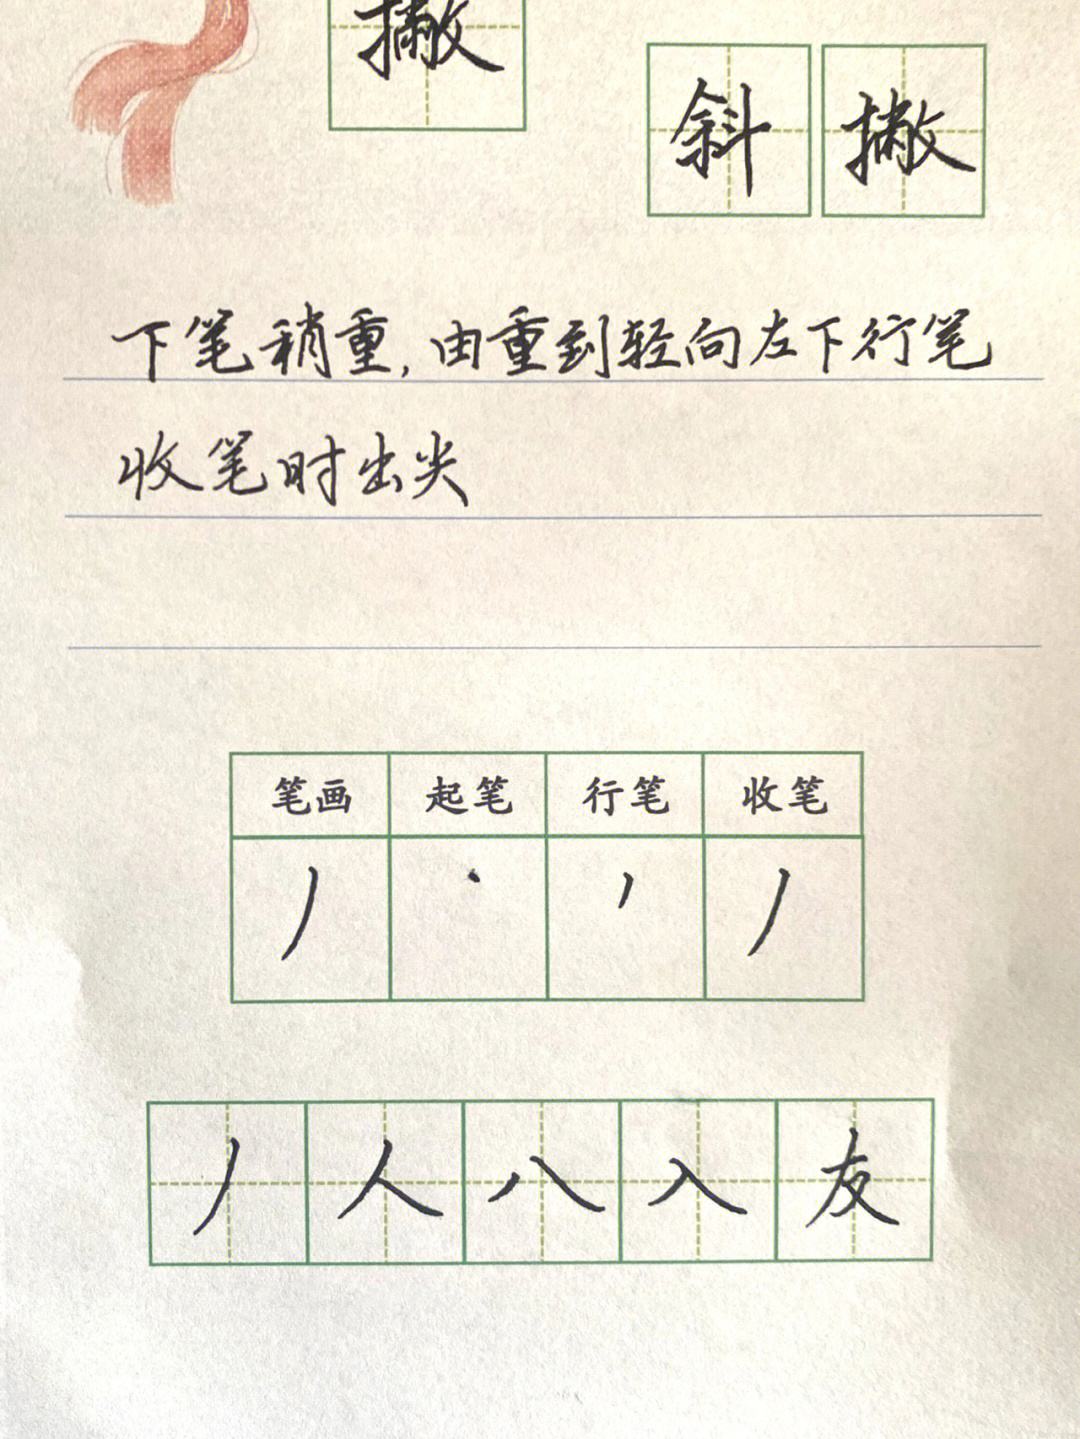 撇
斜撇
下笔稍重,由重到轻向左下行笔
收笔时出尖
笔画 起笔 行笔 收笔
丿 丶 丿 丿
丿 人 八 入 友